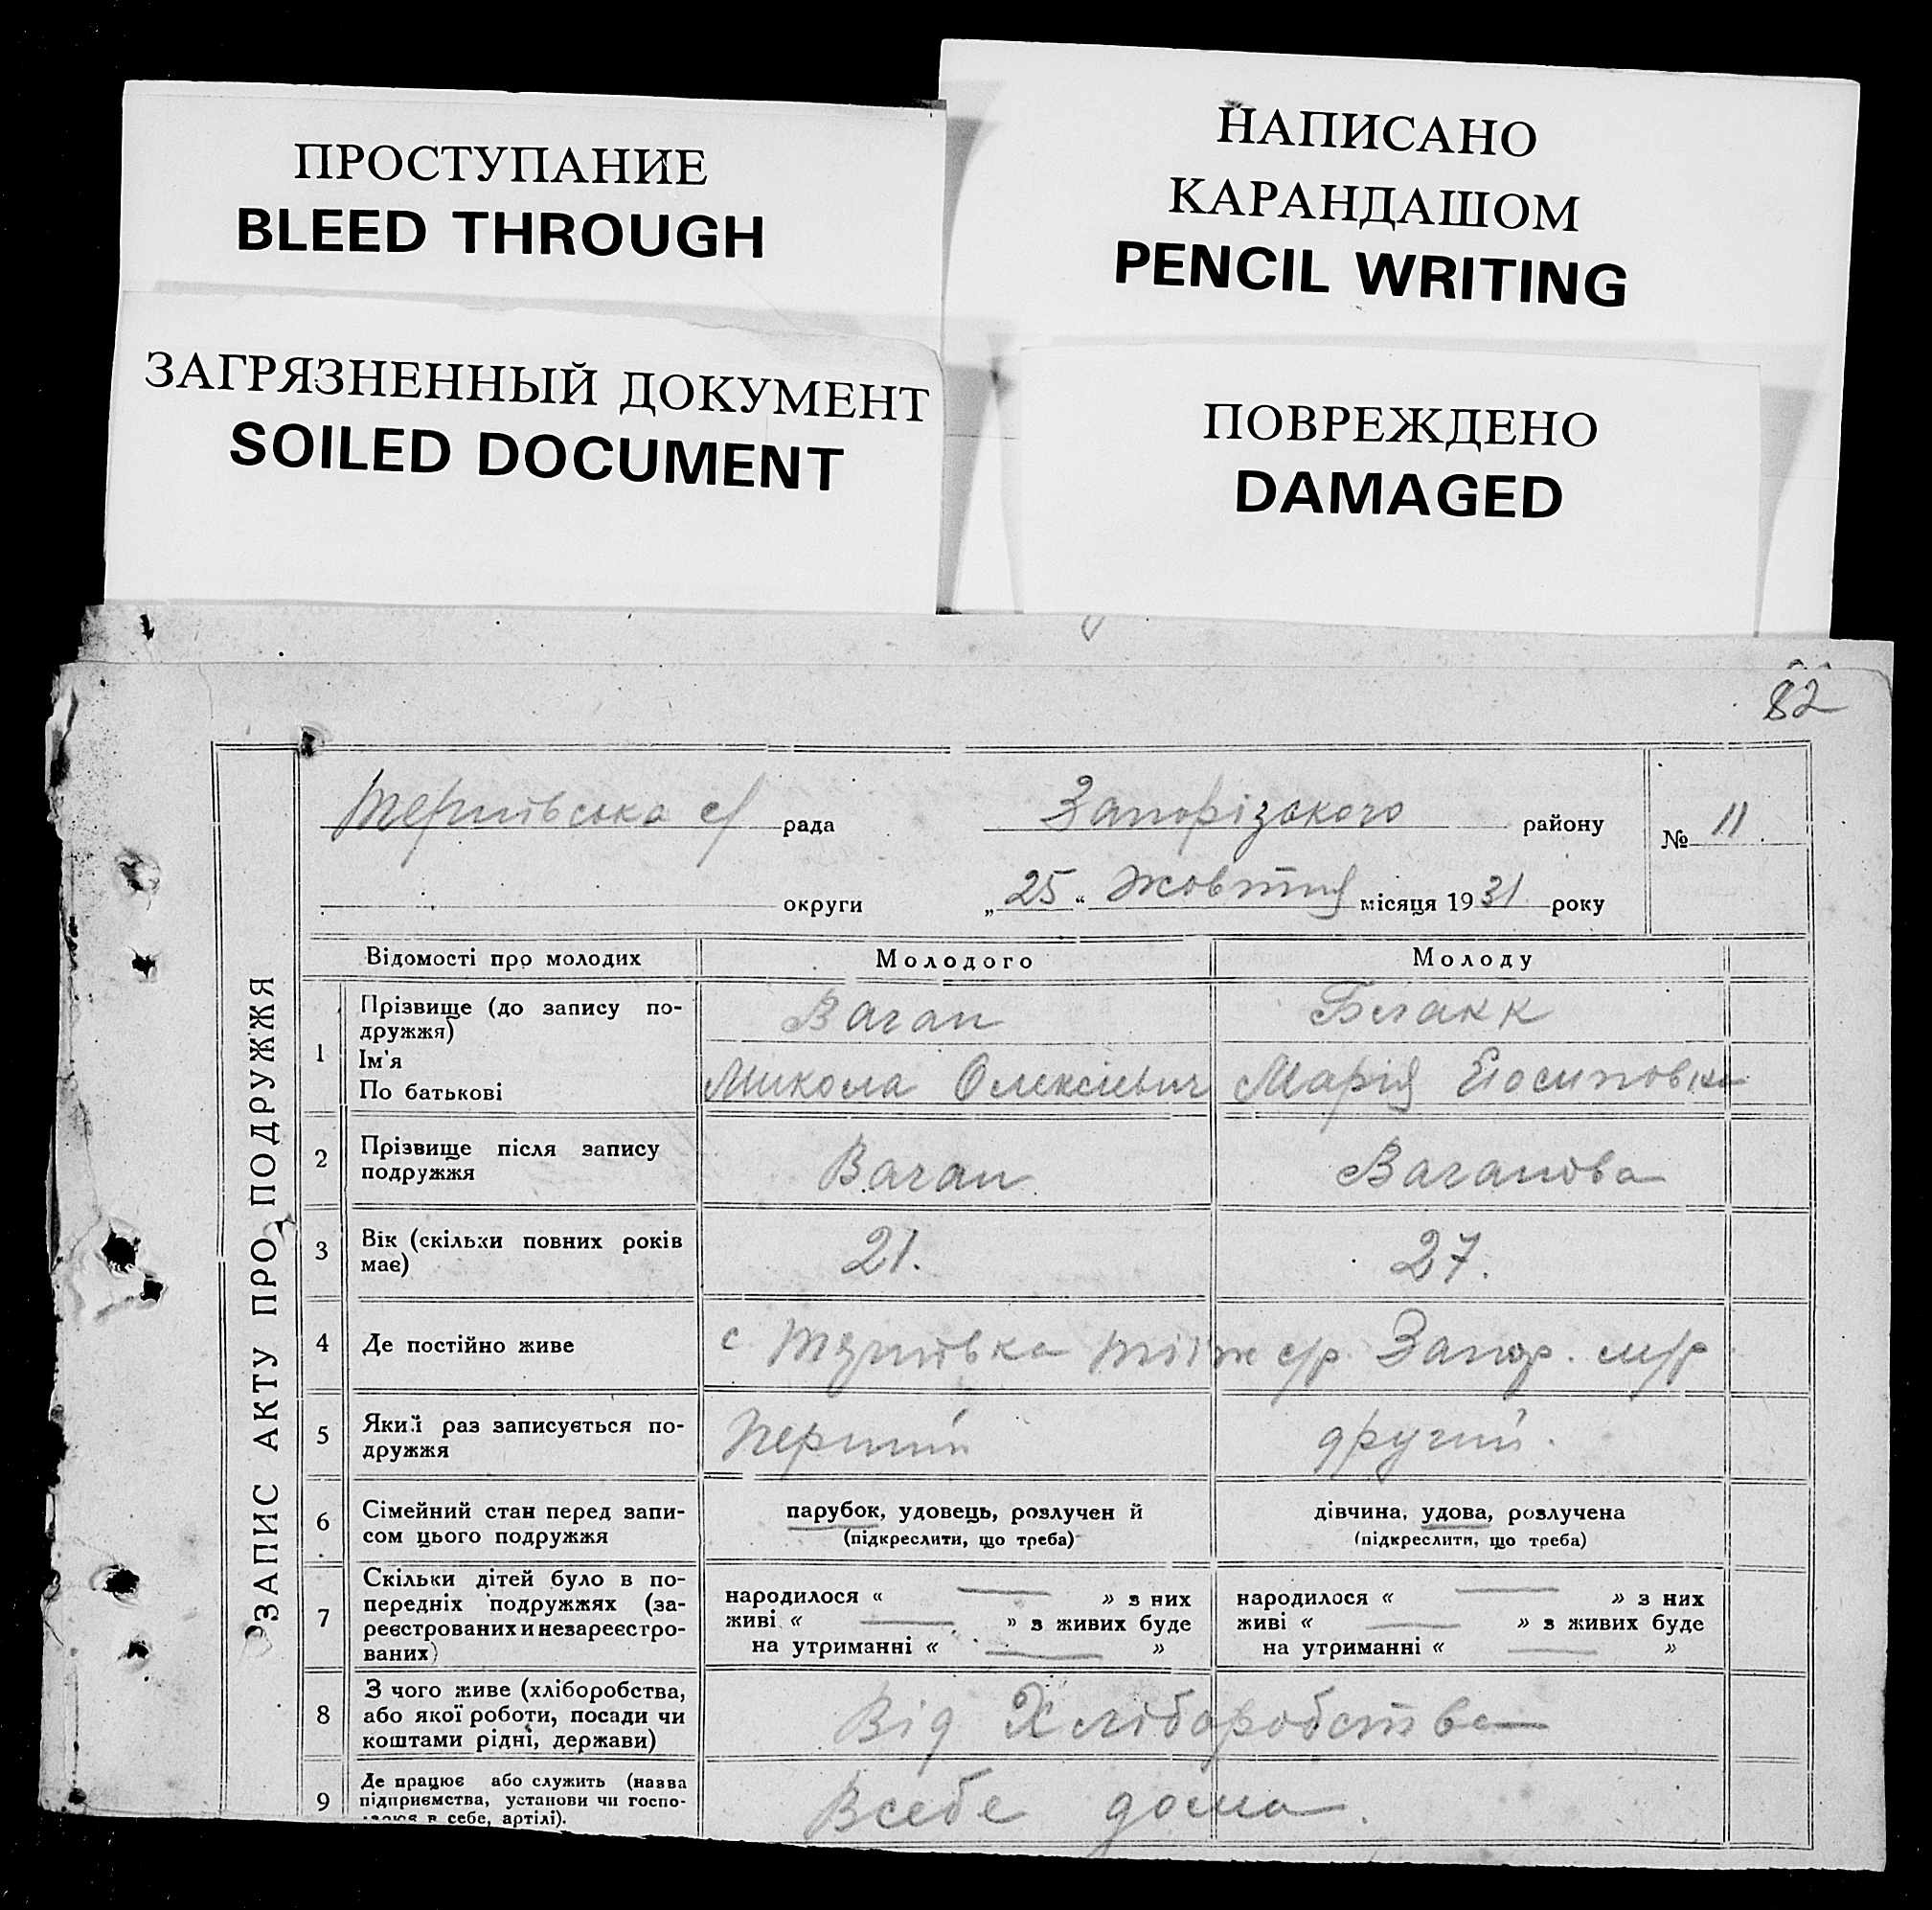 ПРОСТУПАНИЕ
BLEED THROUGH
НАПИСАНО
КАРАНДАШОМ
PENCIL WRITING
ЗАГРЯЗНЕННЫЙ ДОКУМЕНТ
SOILED DOCUMENT
ПОВРЕЖДЕНО
DAMAGED
82
ЗАПИС АКТУ ПРО ПОДРУЖЖЯ
с/ рада Запорізского району № 11
округи „25“ жовтня місяця 1931 року
Відомості про молодих Молодого Молоду
1 Прізвище (до запису по-
дружжя)
Ваган
Ім'я
По батькові
Микола Олексієвич Марія Йосиповна
2 Прізвище після запису
подружжя
Ваган Ваганова
3 Вік (скільки повних років
має)
21. 27.
4 Де постійно живе с. с/р. Запор. м/р
5 Який раз записується по-
дружжя
перший другий.
6 Сімейний стан перед запи-
сом цього подружжя
парубок, удовець, розлучен й
(підкреслити, що треба)
дівчина, удова, розлучена
(підкреслити, що треба)
7 Скільки дітей було в по-
передніх подружжях (за-
реєстрованих и незареєстро-
ваних)
народилося « — » з них
живі « — » з живих буде
на утриманні « — »
народилося « — » з них
живі « — » з живих буде
на утриманні « — »
8 З чого живе (хліборобства,
або якої роботи, посади чи
коштами рідні, держави)
Від Хліборобства
9 Де працює або служить (назва
підприємства, установи чи госпо-
в себе, артілі).
Всебе дома.